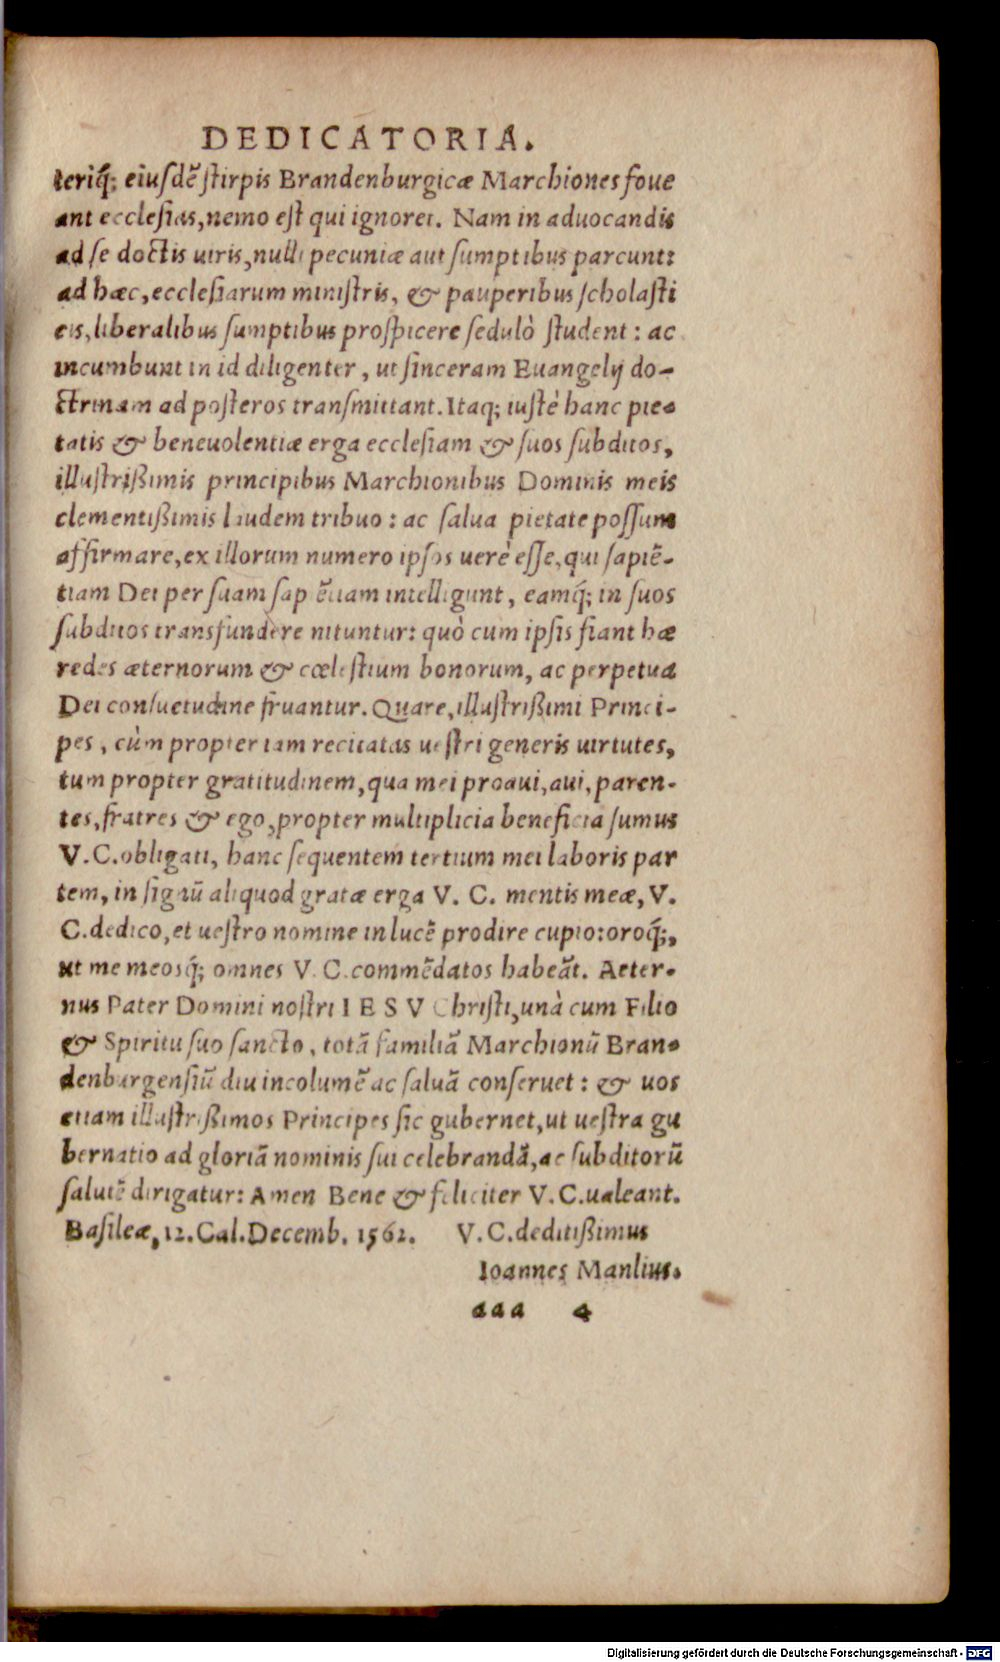 DEDICATORIA.
teriq́; eiusdẽ stirpis Brandenburgicæ Marchiones foue
ant ecclesias, nemo est qui ignoret. Nam in aduocandis
ad se doctis uiris, nulli pecuniæ aut sumptibus parcunt:
ad hæc, ecclesiarum ministris, & pauperibus scholasti
cis, liberalibus sumptibus prospicere sedulò student: ac
incumbunt in id diligenter, ut sinceram Euangelij do-
ctrinam ad posteros transmittant. Itaq; iustè hanc pie-
tatis & beneuolentiæ erga ecclesiam & suos subditos,
illustrißimis principibus Marchionibus Dominis meis
clementißimis laudem tribuo: ac salua pietate possum
affirmare, ex illorum numero ipsos uerè esse, qui sapiẽ-
tiam Dei per suam sapẽtiam intelligunt, eamq́; in suos
subditos transfundere nituntur: quò cum ipsis fiant hæ
redes æternorum & cœlestium bonorum, ac perpetua
Dei consuetudine fruantur. Quare, illustrißimi Princi-
pes, cùm propter iam recitatas uestri generis uirtutes,
tum propter gratitudinem, qua mei proaui, aui, paren-
tes, fratres & ego, propter multiplicia beneficia sumus
V. C. obligati, hanc sequentem tertium mei laboris par
tem, in signũ aliquod gratæ erga V. C. mentis meæ, V.
C. dedico, et uestro nomine in lucẽ prodire cupio: oroq́;,
ut me meosq́; omnes V. C. commẽdatos habeãt. Aeter-
nus Pater Domini nostri IESV Christi, unà cum Filio
& Spiritu suo sancto, totã familiã Marchionũ Bran-
denburgensiũ diu incolumẽ ac saluã conseruet: & uos
etiam illustrißimos Principes sic gubernet, ut uestra gu
bernatio ad gloriã nominis sui celebrandã, ac subditorũ
salutẽ dirigatur: Amen Bene & feliciter V. C. ualeant.
Basileæ, 12. Cal. Decemb. 1562. V. C. deditißimus
Ioannes Manlius.
aaa 4
Digitalisierung gefördert durch die Deutsche Forschungsgemeinschaft - DFG